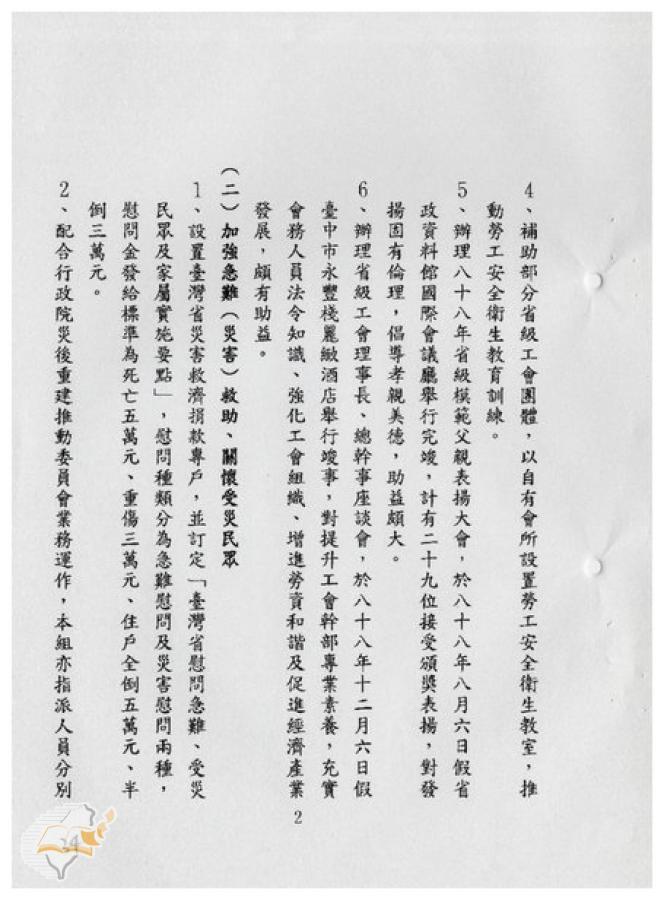 4、補助部分省級工會團體，以自有會所設置勞工安全衛生教室，推
動勞工安全衛生教育訓練。
5、辦理八十八年省級模範父親表揚大會，於八十八年八月六日假省
政資料館國際會議廳舉行完竣，計有二十九位接受頒獎表揚，對發
揚固有倫理，倡導孝親美德，助益頗大。
6、辦理省級工會理事長、總幹事座談會，於八十八年十二月六日假
臺中市永豐棧麗緻酒店舉行竣事，對提升工會幹部專業素養，充實
會務人員法令知識、強化工會組織、增進勞資和諧及促進經濟產業
發展，頗有助益。
(二)加強急難(災害)救助、關懷受災民眾
1、設置臺灣省災害救濟捐款專戶，並訂定「臺灣省慰問急難、受災
民眾及家屬實施要點」，慰問種類分為急難慰問及災害慰問兩種，
慰問金發給標準為死亡五萬元、重傷三萬元、住戶全倒五萬元、半
倒三萬元。
2、配合行政院災後重建推動委員會業務運作，本組亦指派人員分別
2
24